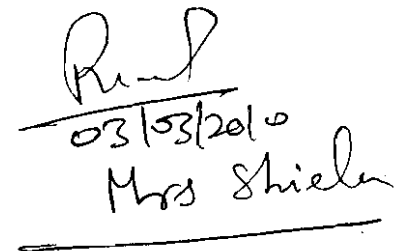 03/03/2010
Mrs Shiela